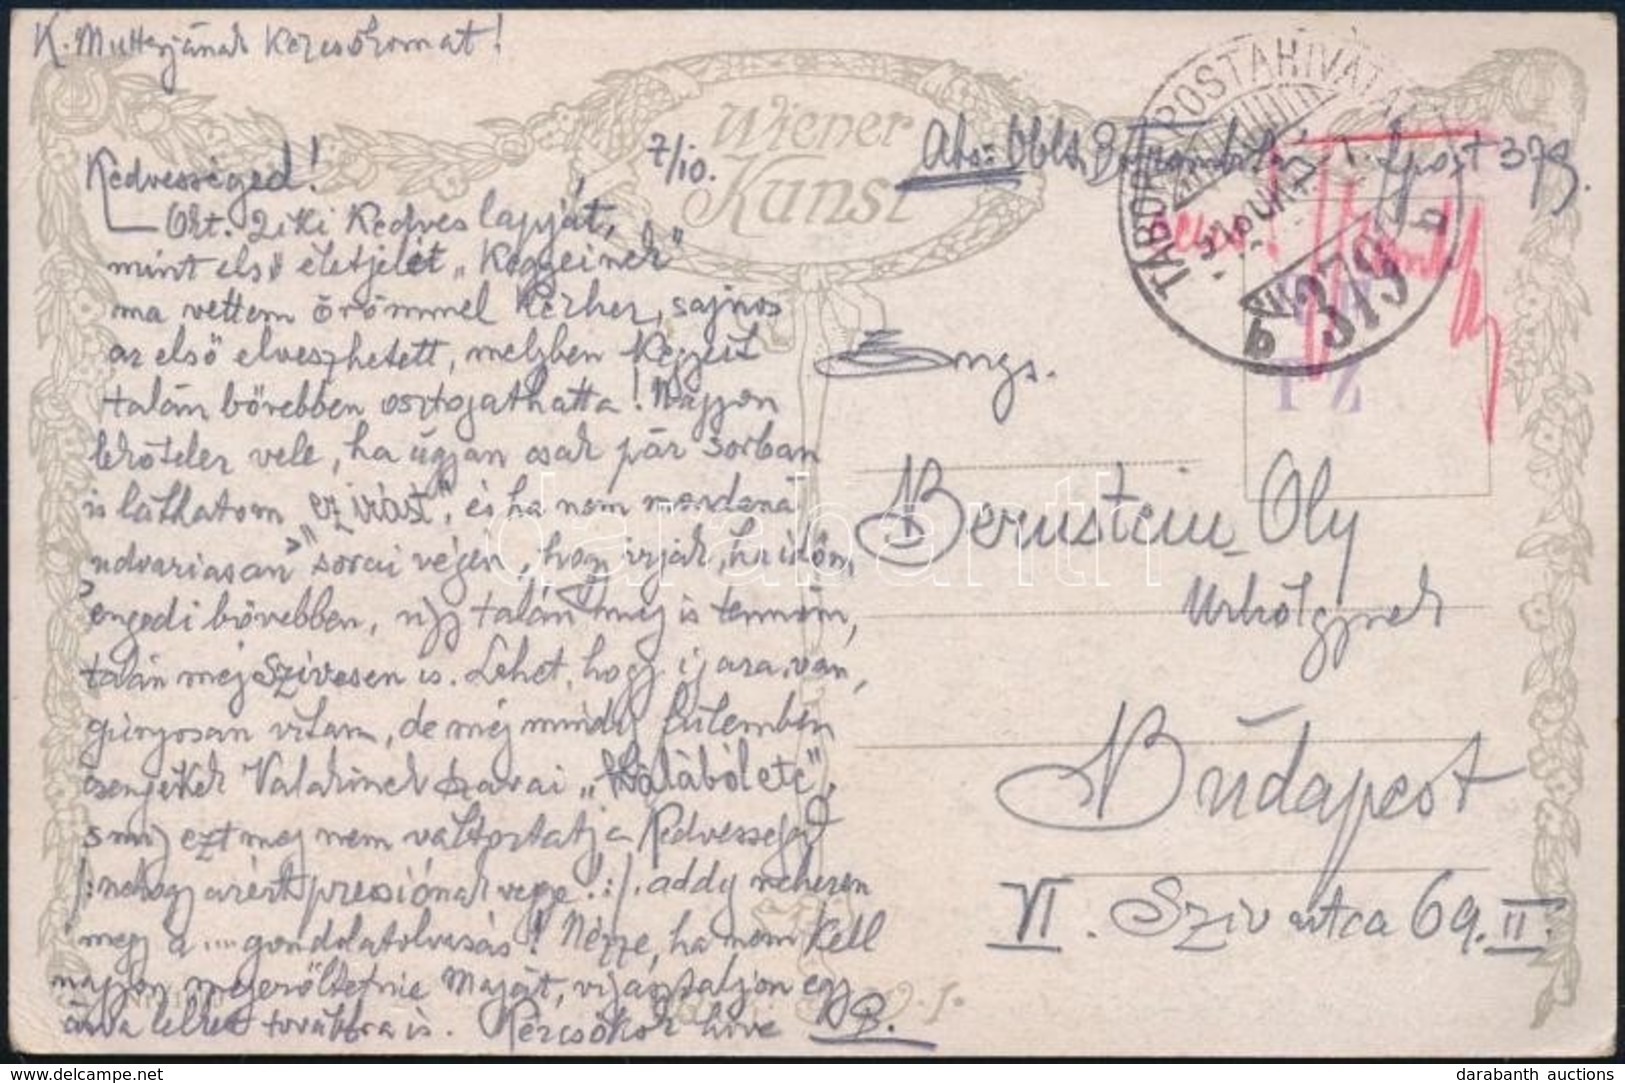 K. Mutterjának kézcsókomat!
Wiener
Kunst
Kedvességed! 7/10.
Abs: Oblt. tpost 379.
TÁBORI POSTAHIVATAL
379
b b
Okt. 2iki Kedves lapját,
mint első életjelét „Kegyeinek"
ma vettem örömmel kézhez, sajnos
az első elveszhetett, melyben Kegyeit
talán bővebben osztogathatta! Nagyon
lekötelez vele, ha úgyan csak pár sorban
is láthatom „ez írást", és ha nem mondaná
udvariasan sorai végén, hogy irják, ha időm
engedi bővebben, úgy talán még is tenném,
talán még szívesen is. Lehet, hogy igaza van,
gúnyosan írtam, de még mindig fülemben
csengenek Valakinek szavai „hálából-e te",
s míg ezt meg nem változtatja Kedvességed
/:nehogy azért pressiónak vegye.:/. addig nehezen
megy a .... gondolatolvasás! Nézze, ha nem kell
nagyon megerőltetnie Magát, vigasztaljon egy
árva lelket továbbra is. Kézcsókok híve B.
Ings.
Bernstein Oly
Urhölgynek
Budapest
VI. Sziv utca 69. II.
darabanth
darabanth auctions
delcampe.net